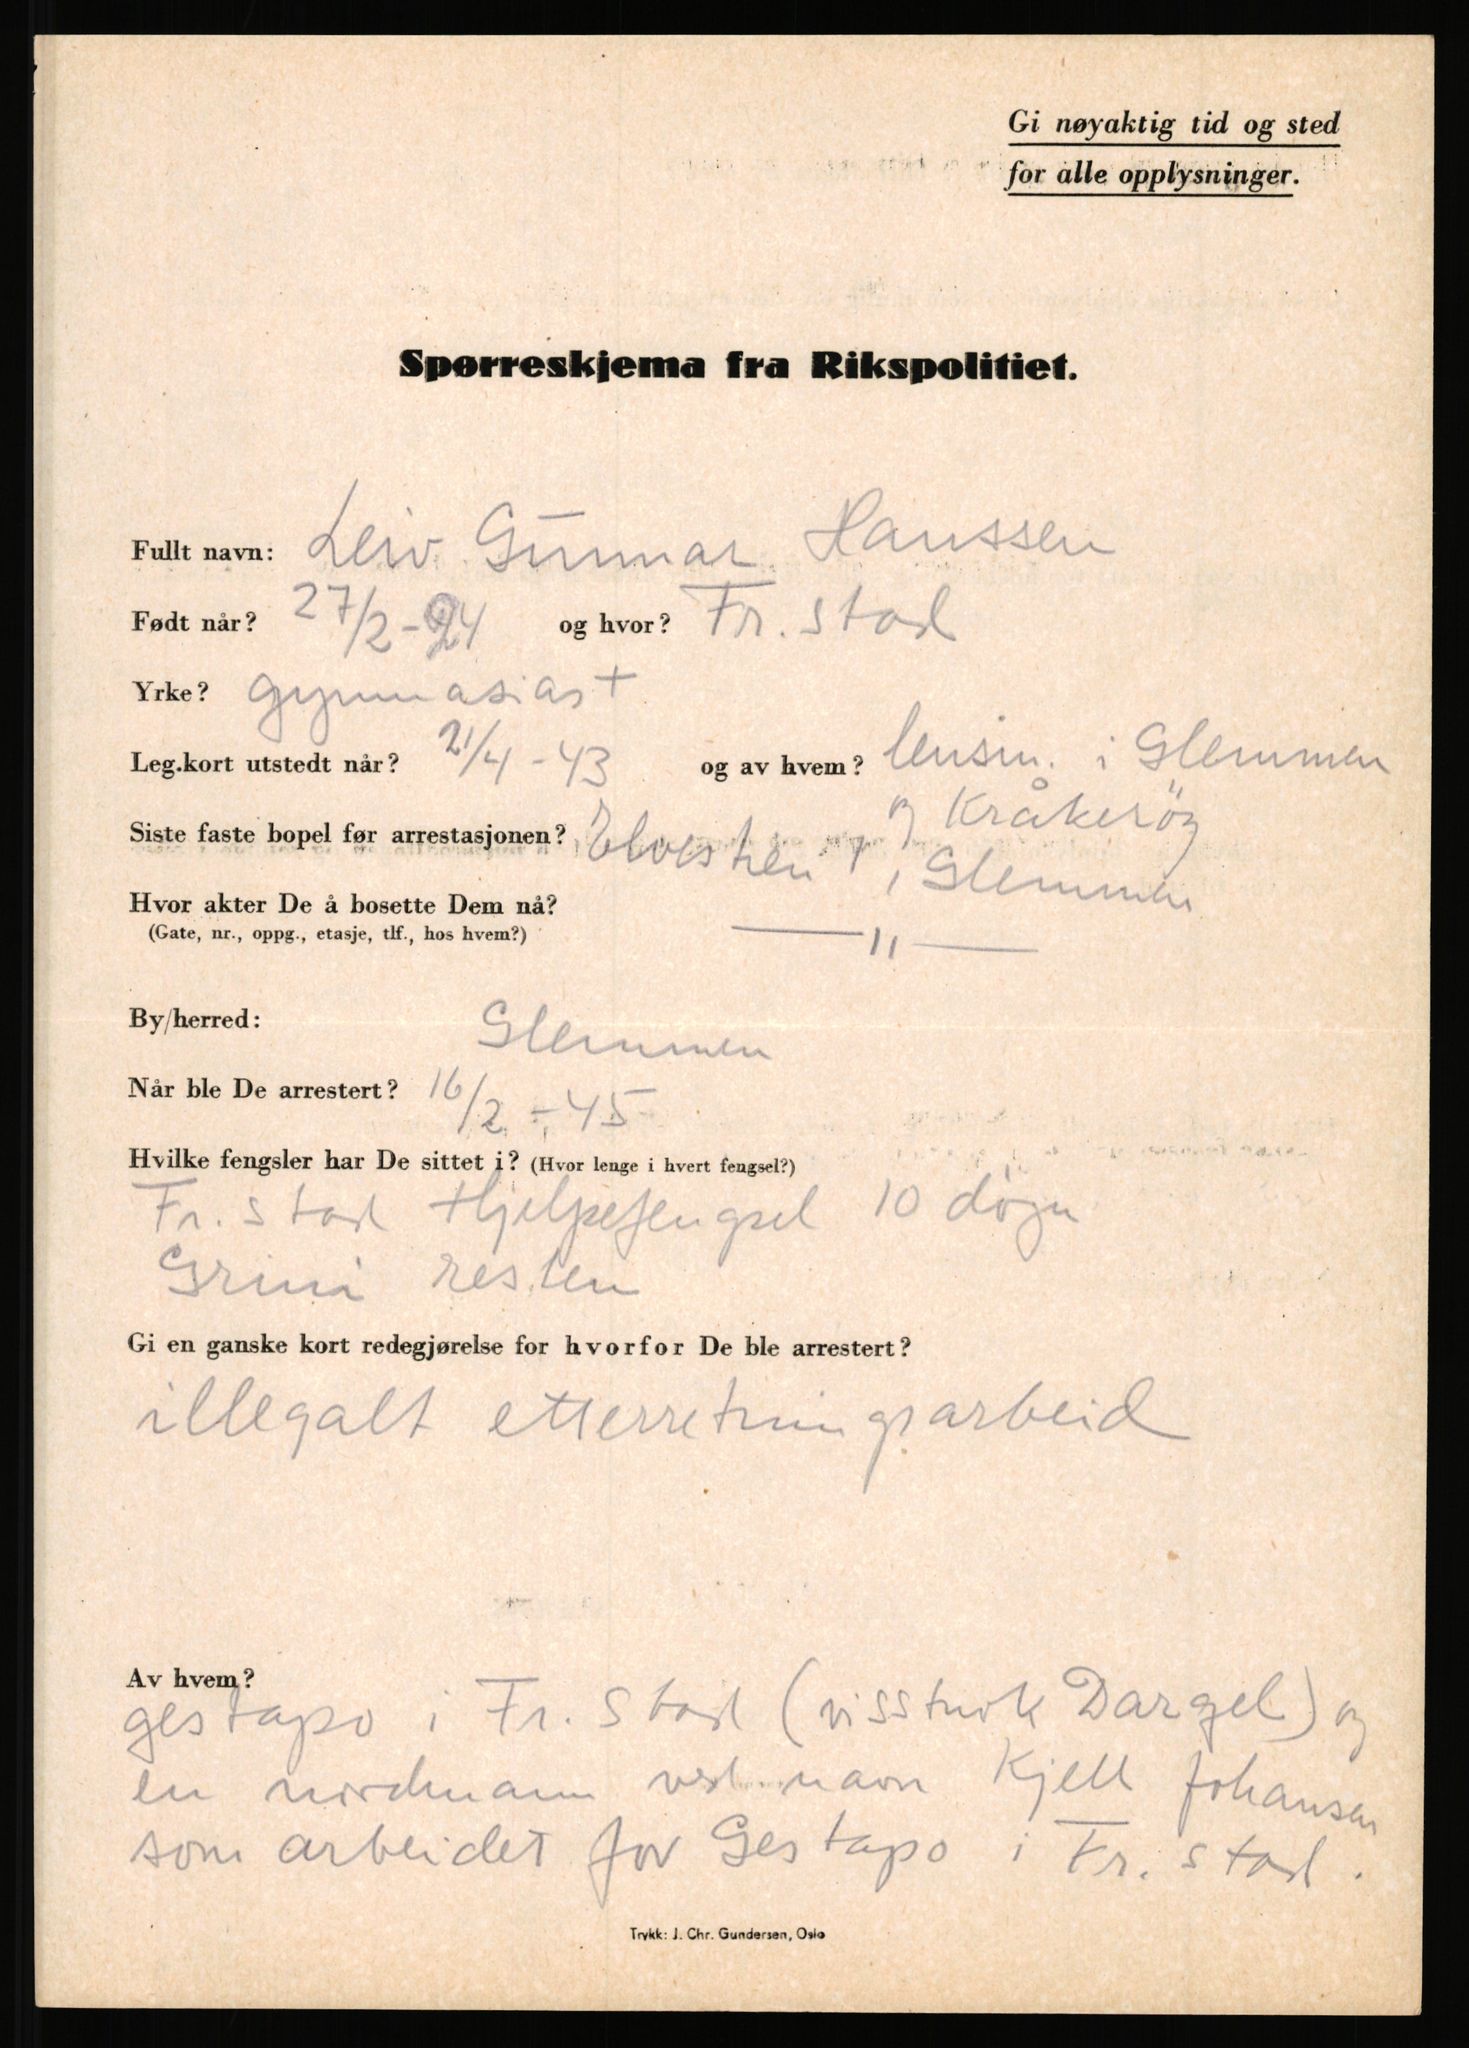 Gi nøyaktig tid og sted
for alle opplysninger.
Spørreskjema fra Rikspolitiet.
Fullt navn: Leiv Gunnar Hanssen
Født når? 27/2-24 og hvor? Fr.stad
Yrke? gymnasiast
Leg.kort utstedt når? 21/4-43 og av hvem? lensm. i Glemmen
og Kråkerøy
Siste faste bopel før arrestasjonen? , Glemmen
Hvor akter De å bosette Dem nå?
(Gate, nr., oppg., etasje, tlf., hos hvem?) — 11 —
By/herred: Glemmen
Når ble De arrestert? 16/2-45
Hvilke fengsler har De sittet i? (Hvor lenge i hvert fengsel?)
Fr.stad Hjelpefengsel 10 døgn
Grini resten
Gi en ganske kort redegjørelse for hvorfor De ble arrestert?
illegalt etterretningsarbeid
Av hvem?
gestapo i Fr.stad (visstnok Dargel) og
en nordmann ved navn Kjell Johansen
som arbeidet for Gestapo i Fr.stad.
Trykk: J. Chr. Gundersen, Oslo